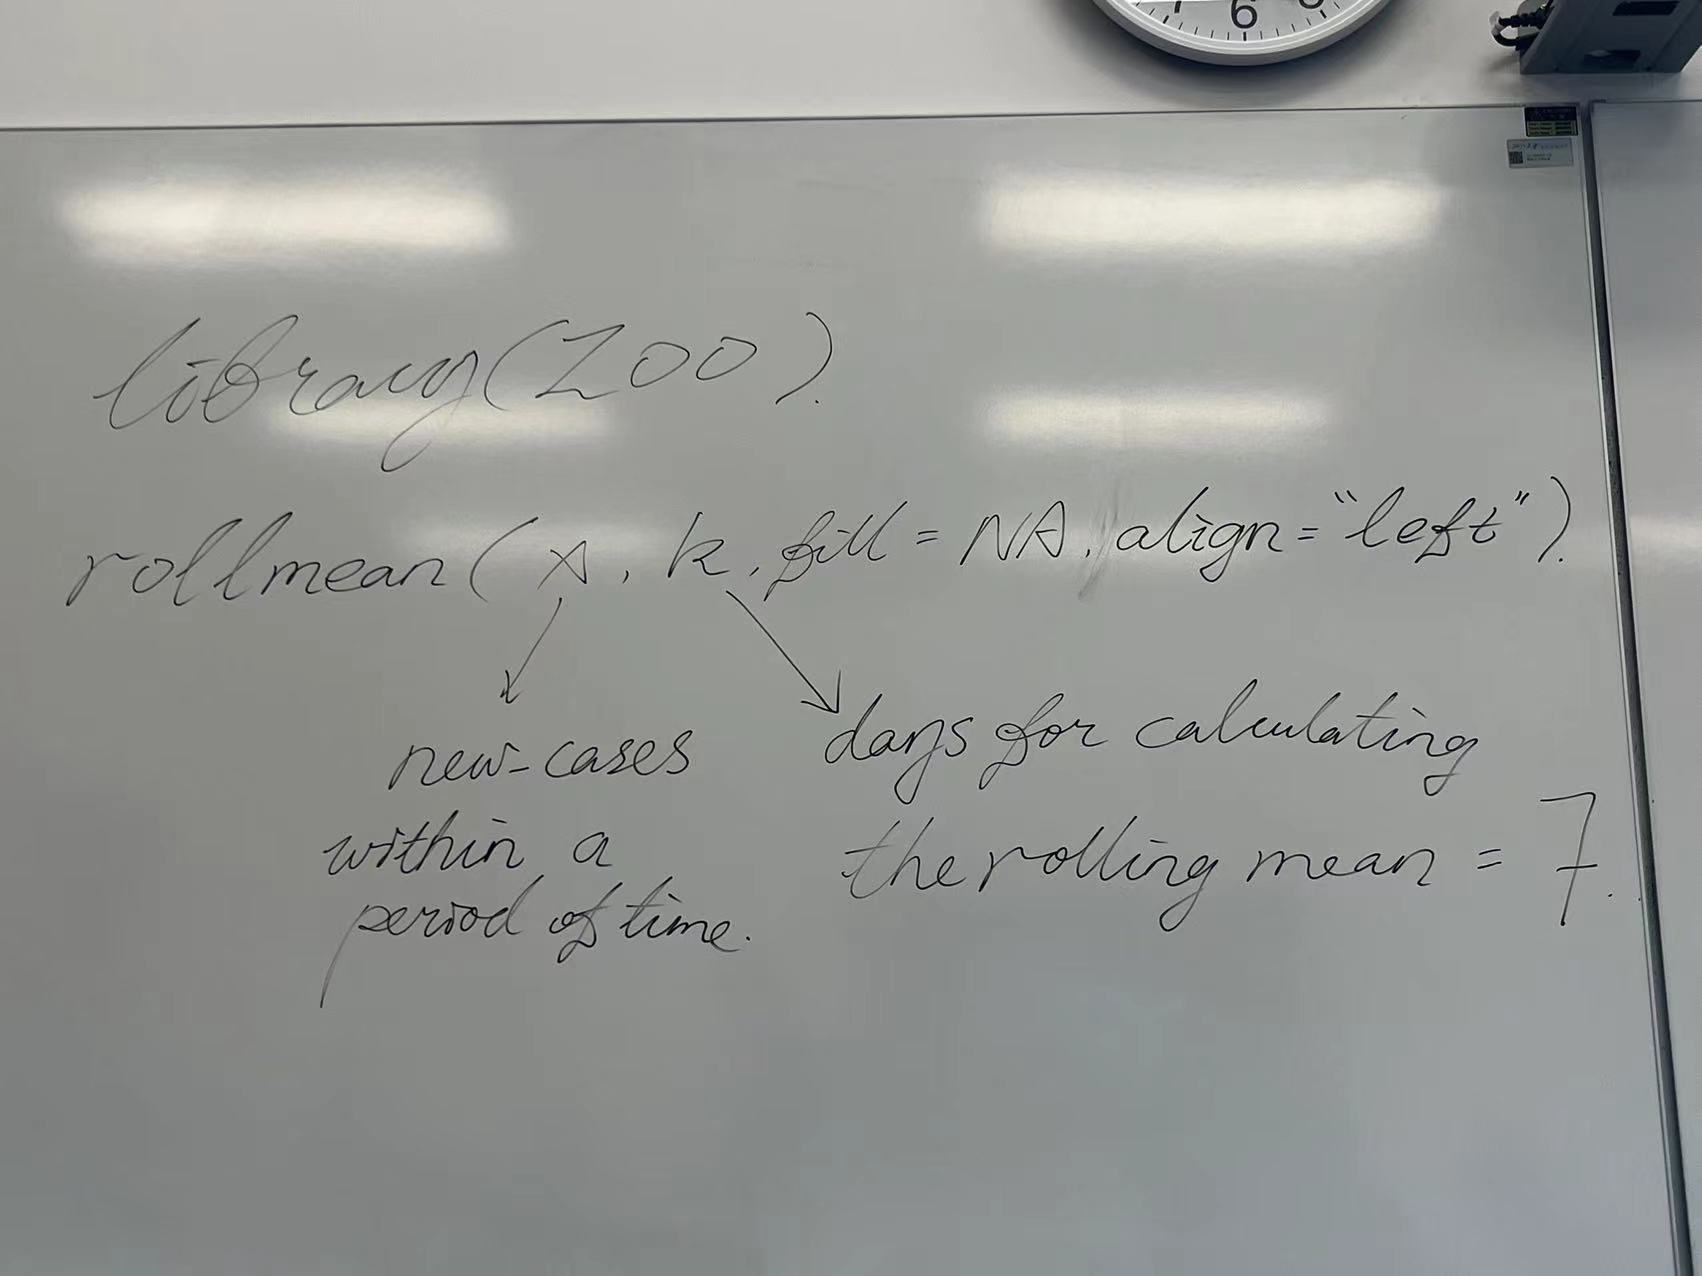 6
library(zoo).
rollmean(x, k, fill = NA, align = “left”).
new_cases
within a
period of time.
days for calculating
the rolling mean = 7.